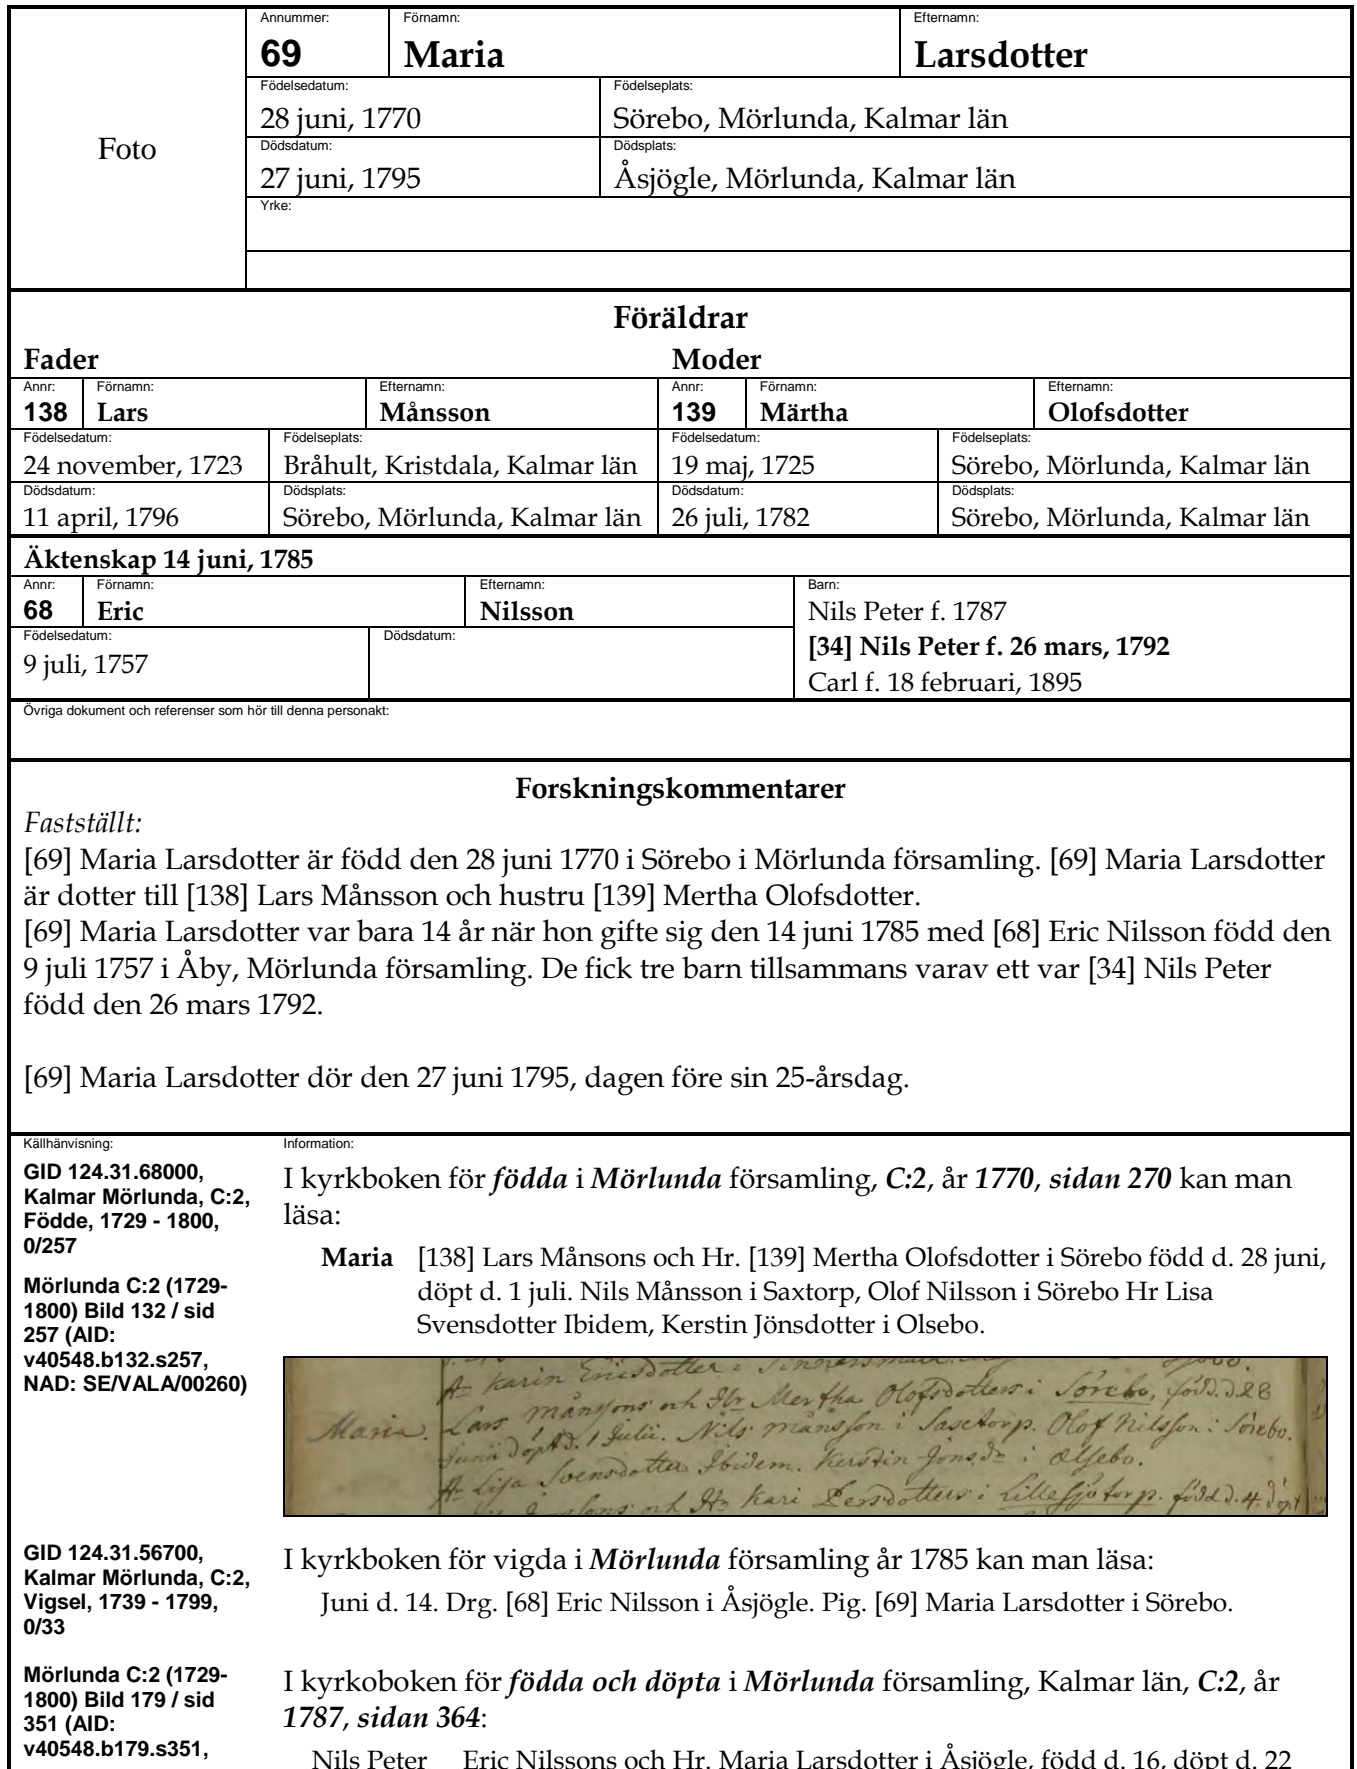 Foto
Annummer:
69
Förnamn:
Maria
Efternamn:
Larsdotter
Födelsedatum:
28 juni, 1770
Födelseplats:
Sörebo, Mörlunda, Kalmar län
Dödsdatum:
27 juni, 1795
Dödsplats:
Åsjögle, Mörlunda, Kalmar län
Yrke:
Föräldrar
Fader
Moder
Annr:
138
Förnamn:
Lars
Efternamn:
Månsson
Annr:
139
Förnamn:
Märtha
Efternamn:
Olofsdotter
Födelsedatum:
24 november, 1723
Födelseplats:
Bråhult, Kristdala, Kalmar län
Födelsedatum:
19 maj, 1725
Födelseplats:
Sörebo, Mörlunda, Kalmar län
Dödsdatum:
11 april, 1796
Dödsplats:
Sörebo, Mörlunda, Kalmar län
Dödsdatum:
26 juli, 1782
Dödsplats:
Sörebo, Mörlunda, Kalmar län
Äktenskap 14 juni, 1785
Annr:
68
Förnamn:
Eric
Efternamn:
Nilsson
Födelsedatum:
9 juli, 1757
Dödsdatum:
Barn:
Nils Peter f. 1787
[34] Nils Peter f. 26 mars, 1792
Carl f. 18 februari, 1895
Övriga dokument och referenser som hör till denna personakt:
Forskningskommentarer
Fastställt:
[69] Maria Larsdotter är född den 28 juni 1770 i Sörebo i Mörlunda församling. [69] Maria Larsdotter
är dotter till [138] Lars Månsson och hustru [139] Mertha Olofsdotter.
[69] Maria Larsdotter var bara 14 år när hon gifte sig den 14 juni 1785 med [68] Eric Nilsson född den
9 juli 1757 i Åby, Mörlunda församling. De fick tre barn tillsammans varav ett var [34] Nils Peter
född den 26 mars 1792.
[69] Maria Larsdotter dör den 27 juni 1795, dagen före sin 25-årsdag.
Källhänvisning:
Information:
GID 124.31.68000,
Kalmar Mörlunda, C:2,
Födde, 1729 - 1800,
0/257
Mörlunda C:2 (1729-
1800) Bild 132 / sid
257 (AID:
v40548.b132.s257,
NAD: SE/VALA/00260)
I kyrkboken för födda i Mörlunda församling, C:2, år 1770, sidan 270 kan man
läsa:
Maria [138] Lars Månsons och Hr. [139] Mertha Olofsdotter i Sörebo född d. 28 juni,
döpt d. 1 juli. Nils Månsson i Saxtorp, Olof Nilsson i Sörebo Hr Lisa
Svensdotter Ibidem, Kerstin Jönsdotter i Olsebo.
Hr Karin Ericsdotter i
Maria. Lars Månssons och Hr Mertha Olofsdotters i Sörebo, född. d. 28
Junii döpt d. 1 Julii. Nils Månsson i Saxtorp. Olof Nilsson i Sörebo.
Hr Lisa Svensdotter Ibidem. Kerstin Jonsdr i Olsebo.
och Hr Kari Persdotters i Lillesjötorp. född d. 4. döpt
GID 124.31.56700,
Kalmar Mörlunda, C:2,
Vigsel, 1739 - 1799,
0/33
I kyrkboken för vigda i Mörlunda församling år 1785 kan man läsa:
Juni d. 14. Drg. [68] Eric Nilsson i Åsjögle. Pig. [69] Maria Larsdotter i Sörebo.
Mörlunda C:2 (1729-
1800) Bild 179 / sid
351 (AID:
v40548.b179.s351,
I kyrkoboken för födda och döpta i Mörlunda församling, Kalmar län, C:2, år
1787, sidan 364:
Nils Peter Eric Nilssons och Hr. Maria Larsdotter i Åsjögle, född d. 16, döpt d. 22